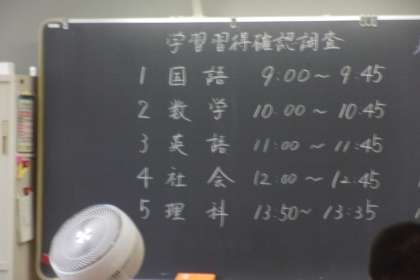 学習習得確認調査
1 国語 9:00～9:45
2 数学 10:00～10:45
3 英語 11:00～11:45
4 社会 12:00～12:45
5 理科 13:50～13:35